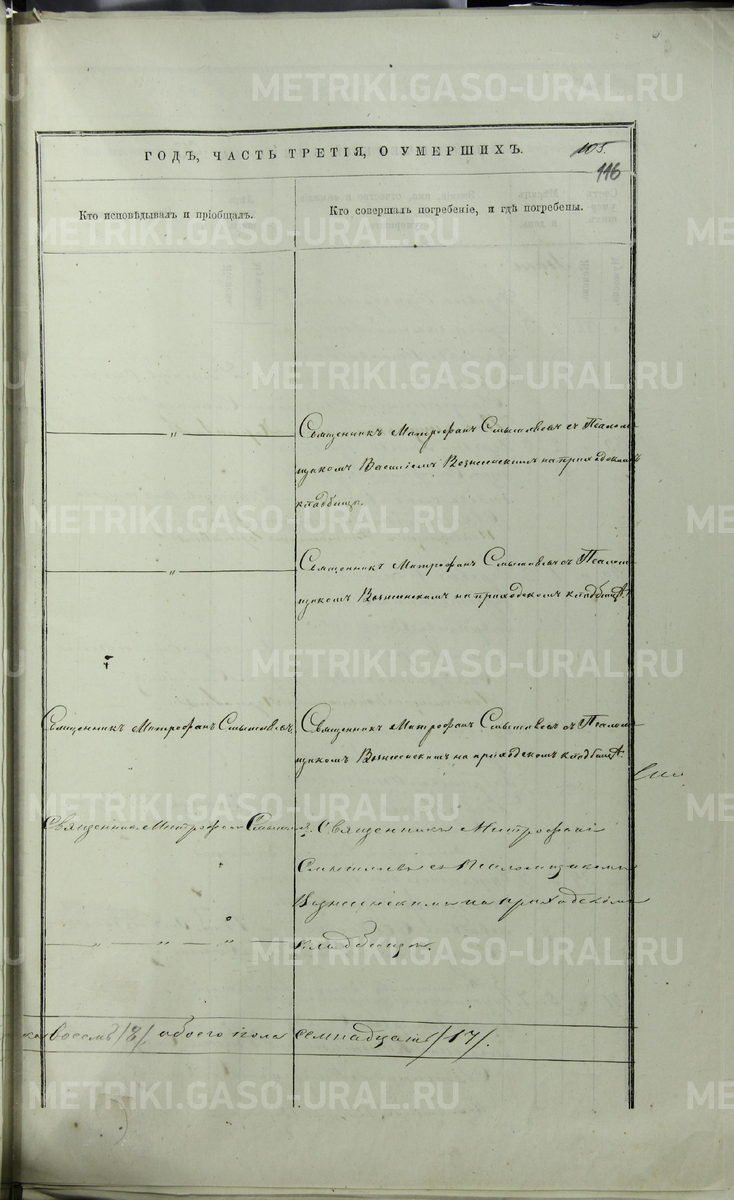 METRIKI.GASO-URAL.RU
ГОДЪ, ЧАСТЬ ТРЕТІЯ, О УМЕРШИХЪ.
105.
116
Кто исповѣдывалъ и пріобщалъ.
Кто совершалъ погребеніе, и гдѣ погребены.
Священникъ Митрофанъ съ Псалом
щикомъ Василіемъ Вознесенскимъ на приходскомъ
кладбищѣ.
Священникъ Митрофанъ съ Псалом
щикомъ Вознесенскимъ на приходскомъ кладбищѣ.
Священникъ Митрофанъ
Священникъ Митрофанъ съ Псалом
щикомъ Вознесенскимъ на приходскомъ кладбищѣ.
Священникъ Митрофанъ
Священникъ Митрофанъ
съ Псаломщикомъ
Вознесенскимъ на приходскомъ
кладбищѣ.
восемь /8/, обоего пола семнадцать /17/.